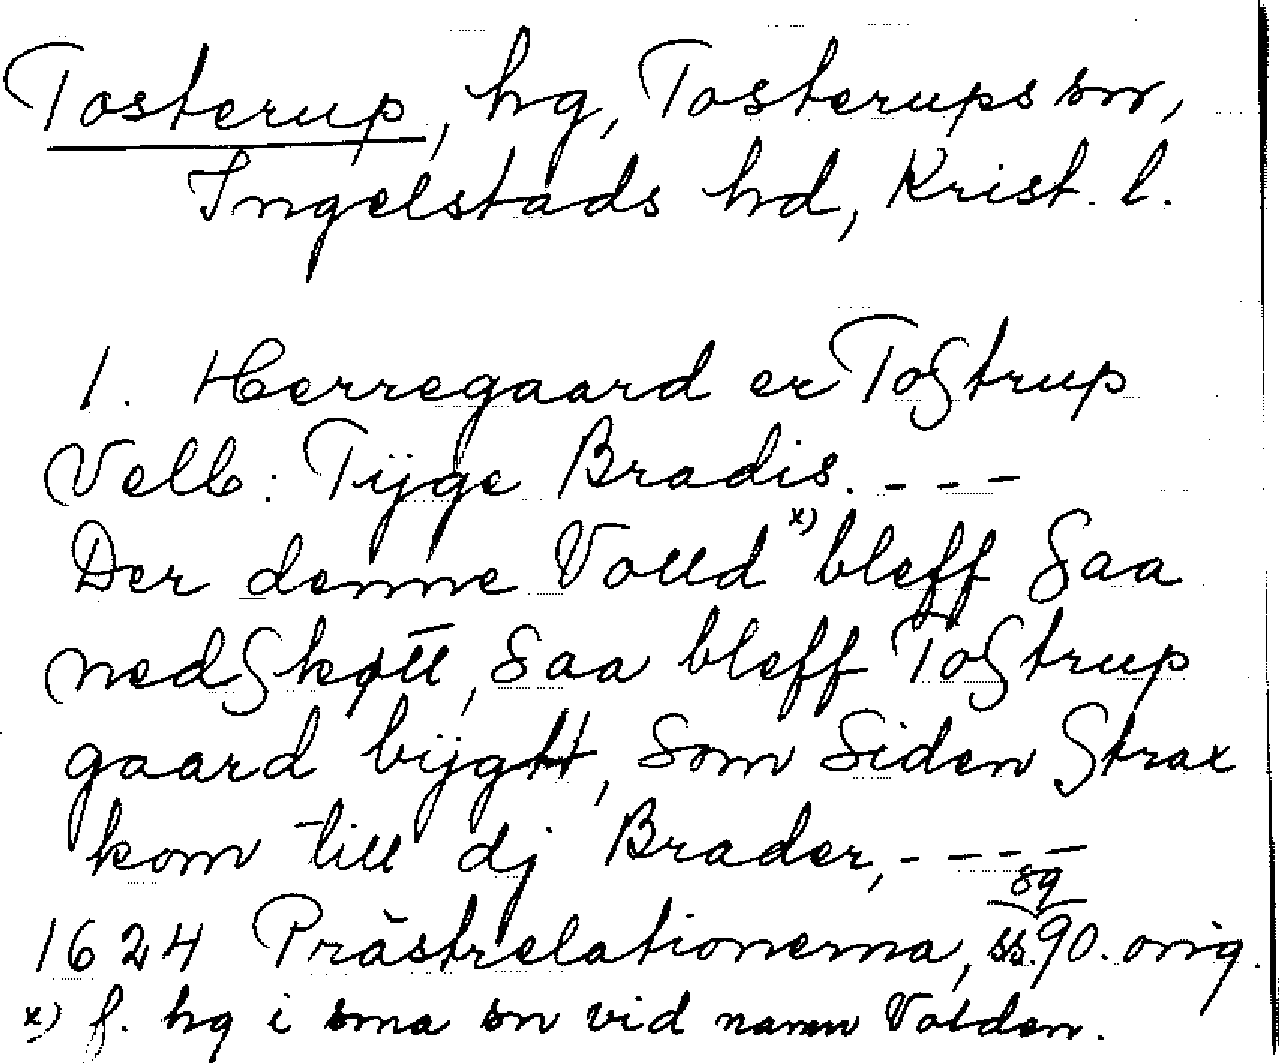 Tosterup, hg, Tosterups sn,
Ingelstads hd, Krist. l.
1. Herregaard er Tostrup
Velb: Tÿge Bradis. - - -
Der denne Volld x) bleff saa
nedskøtt, saa bleff Tostrup
gaard bÿgtt, som siden strax
kom till dj Brader, - - - -
1624 Prästrelationerna, s. 90. orig.
x) f. hg i sma sn vid namn Volden.